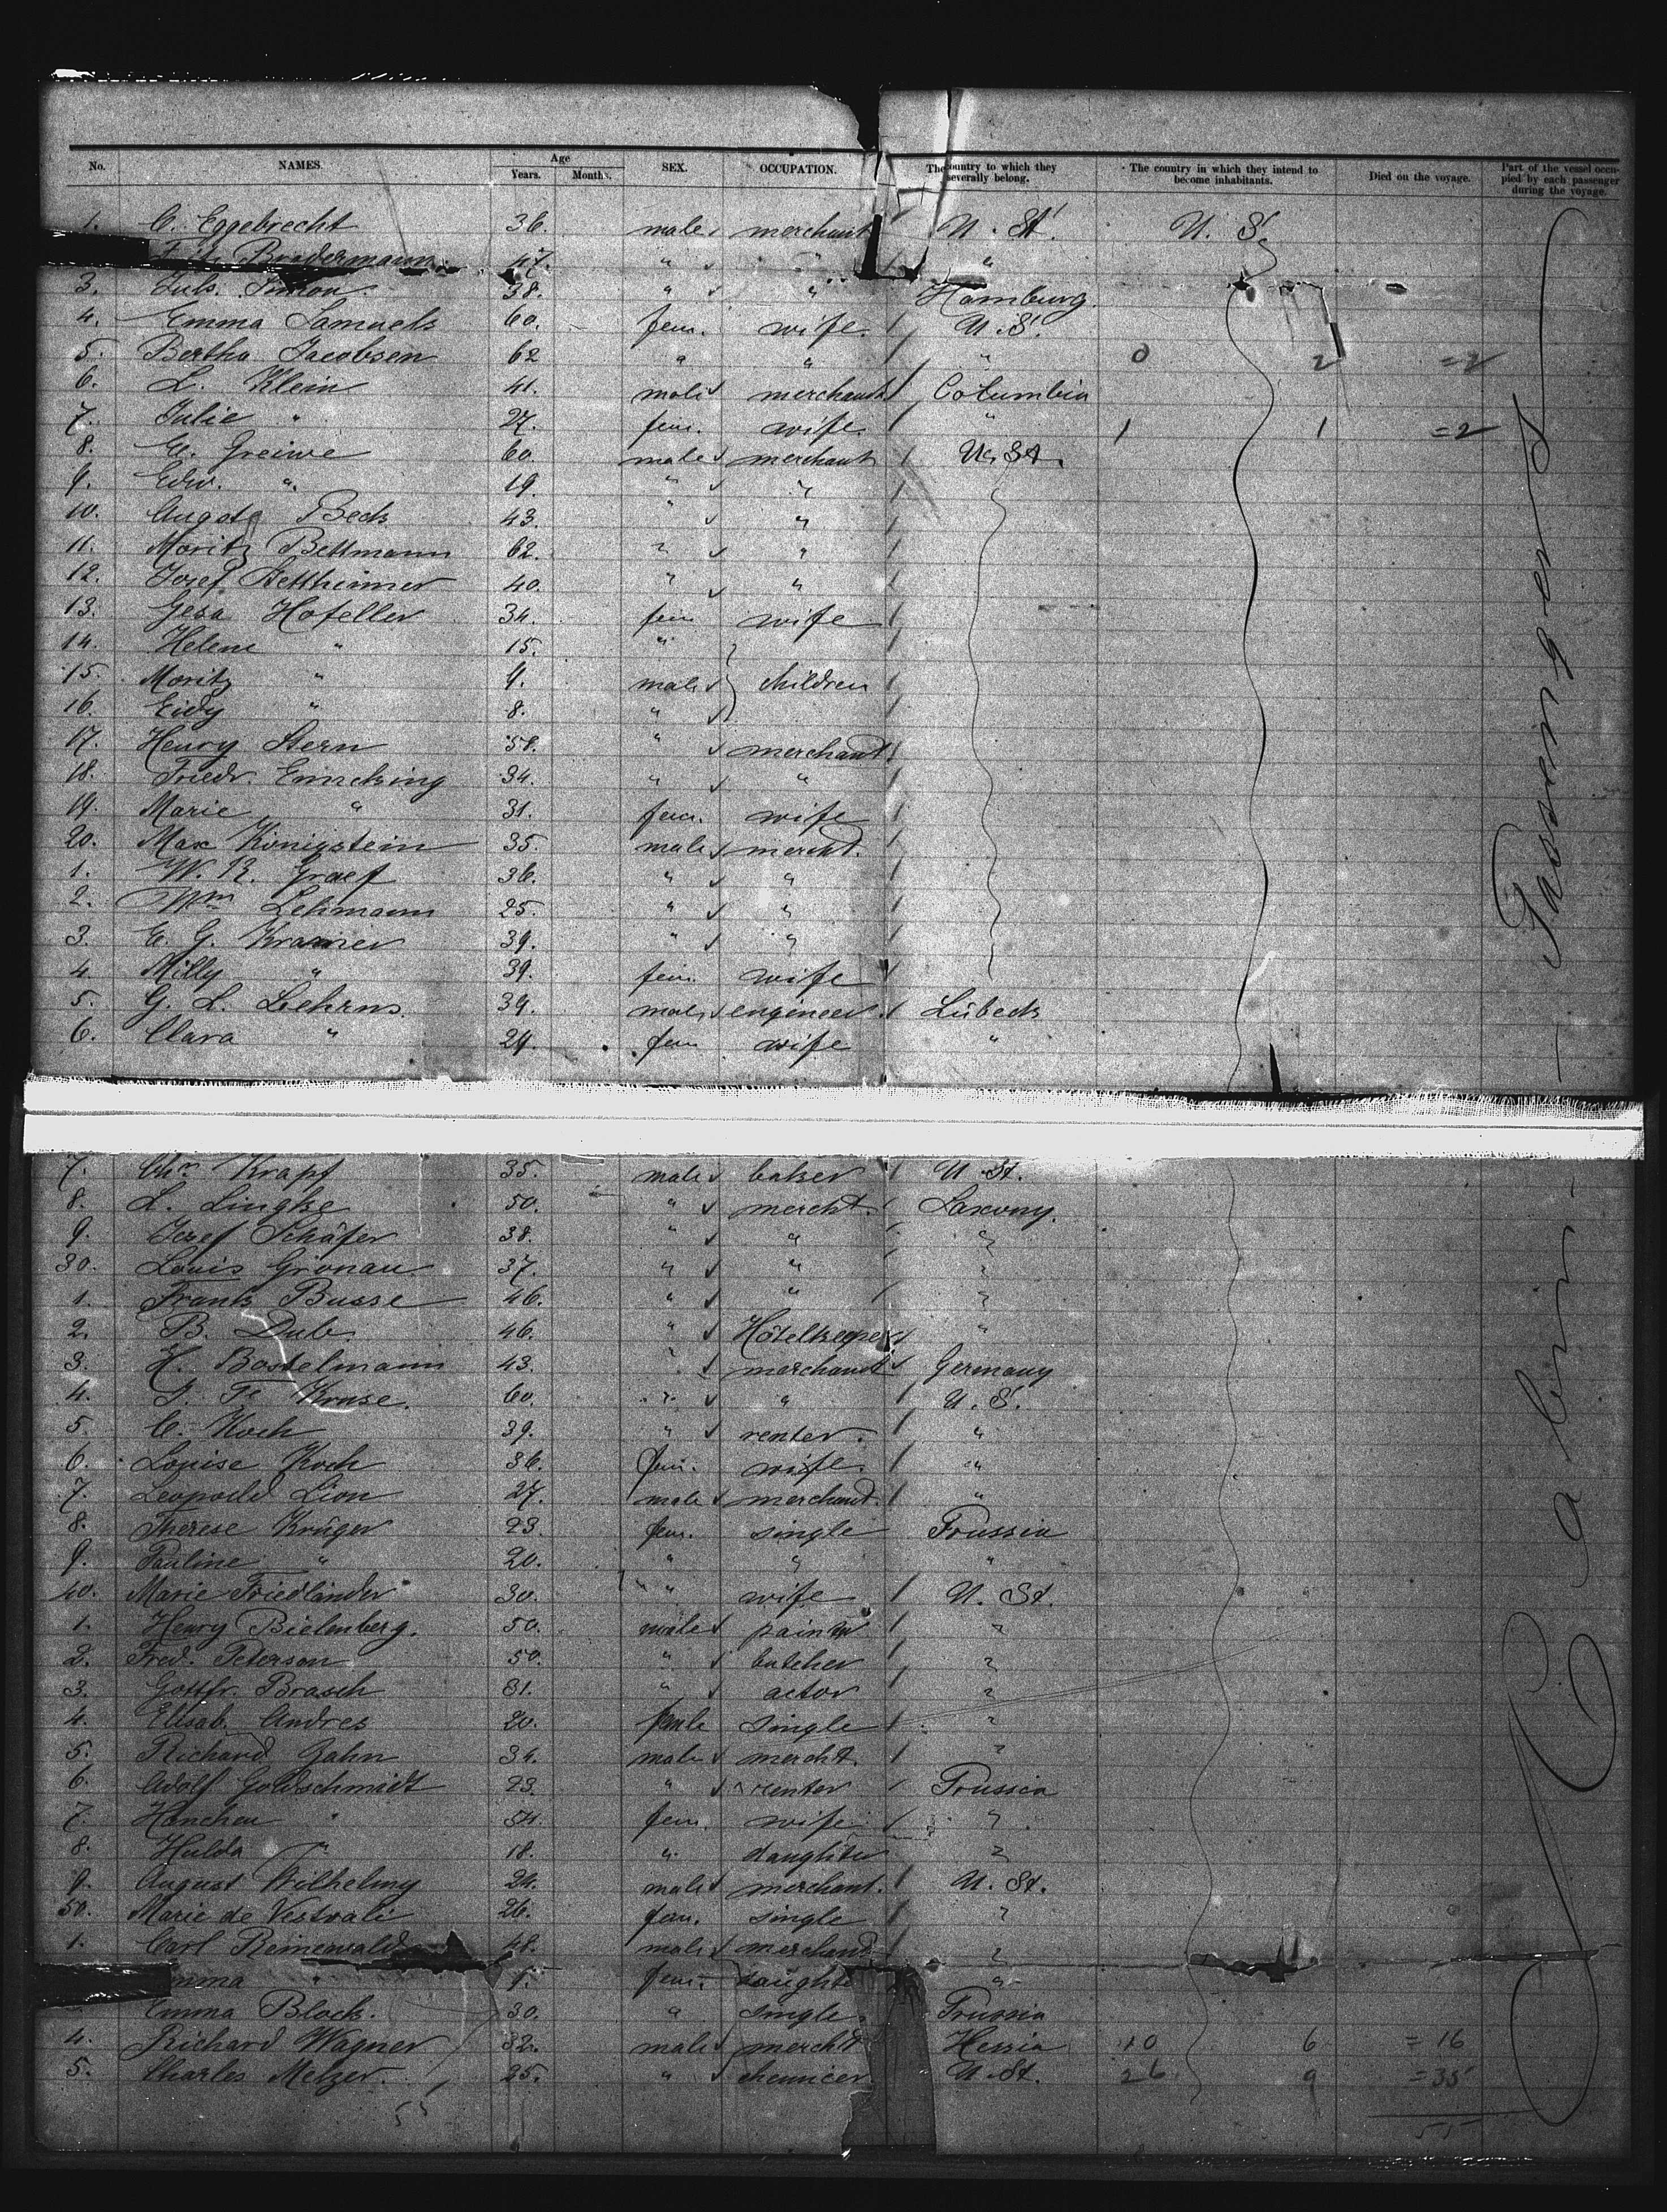 No. NAMES. Age Years. Months. SEX. OCCUPATION. The country to which they severally belong. The country in which they intend to become inhabitants. Died on the voyage. Part of the vessel occupied by each passenger during the voyage.
1. C. Eggebrecht 36. male merchant U. St. U. S.
Brodermann 47. " " "
3. Simon 38. " " Hamburg.
4. Emma Samuels 60. fem. wife. U. S.
5. Bertha Jacobsen 62 " " " 0 2 =2
6. L. Klein 41. male merchant Columbia
7. Julie " 27. fem. wife. " 1 1 =2
8. Greiwe 60. male merchant U. St.
9. Edw. " 19. " "
10. August Beck 43. " "
11. Moritz Bettmann 62. " "
12. Josef 40. " "
13. Gesa Hofeller 34. fem wife
14. Helene " 15. "
15. Moritz " 9. male children
16. " 8. "
17. Henry Stern 58. " merchant
18. Friedr. Emcking 34. " "
19. Marie " 31. fem. wife
20. Max Königstein 35. male mercht.
1. W. R. Graef 36. " "
2. Wm Lehmann 25. " "
3. E. G. Kramer 39. " "
4. Milly " 39. fem. wife
5. G. L. Behrns 39. male engineer Lübeck
6. Clara " 29. fem wife "
7. Chr. Krapf 35. male baker U. St.
8. L. Lingke 50. " mercht. Saxony.
9. Josef Schäfer 38. " " "
30. Louis Gronau 37. " " "
1. Frank Busse 46. " " "
2. B. Dub. 46. " Hôtelkeeper "
3. H. Bostelmann 43. " merchant Germany
4. Kruse. 60. " " U. S.
5. C. Koch 39. " renter. "
6. Louise Koch 36. fem. wife. "
7. Leopold Lion 27. male merchant. "
8. Therese Krüger 23 fem. single Prussia
9. Pauline " 20. " " "
40. Marie Friedländer 30. " wife U. St.
1. Henry Bielenberg. 50. male painter "
2. Fred. Peterson 50. " butcher "
3. Gottfr. Brasch 31. " actor "
4. Elisab. Andres 20. single "
5. Richard Jahn 34. male mercht. "
6. Adolf Goldschmidt 23. " renter Prussia
7. Hanchen " 54. fem. wife "
8. Hulda " 18. " daughter "
9. August Wilhelmy 24. male merchant. U. St.
50. Marie de Vestvali 26. fem. single "
1. Carl Reinewald 48. male merchant "
" fem. "
Emma Block. 30. " single. Prussia
4. Richard Wagner 32. male mercht Hessia 10 6 = 16
5. Charles Melzer. 25. " U. St. 26 9 = 35
55 55
Passengers
Cabin